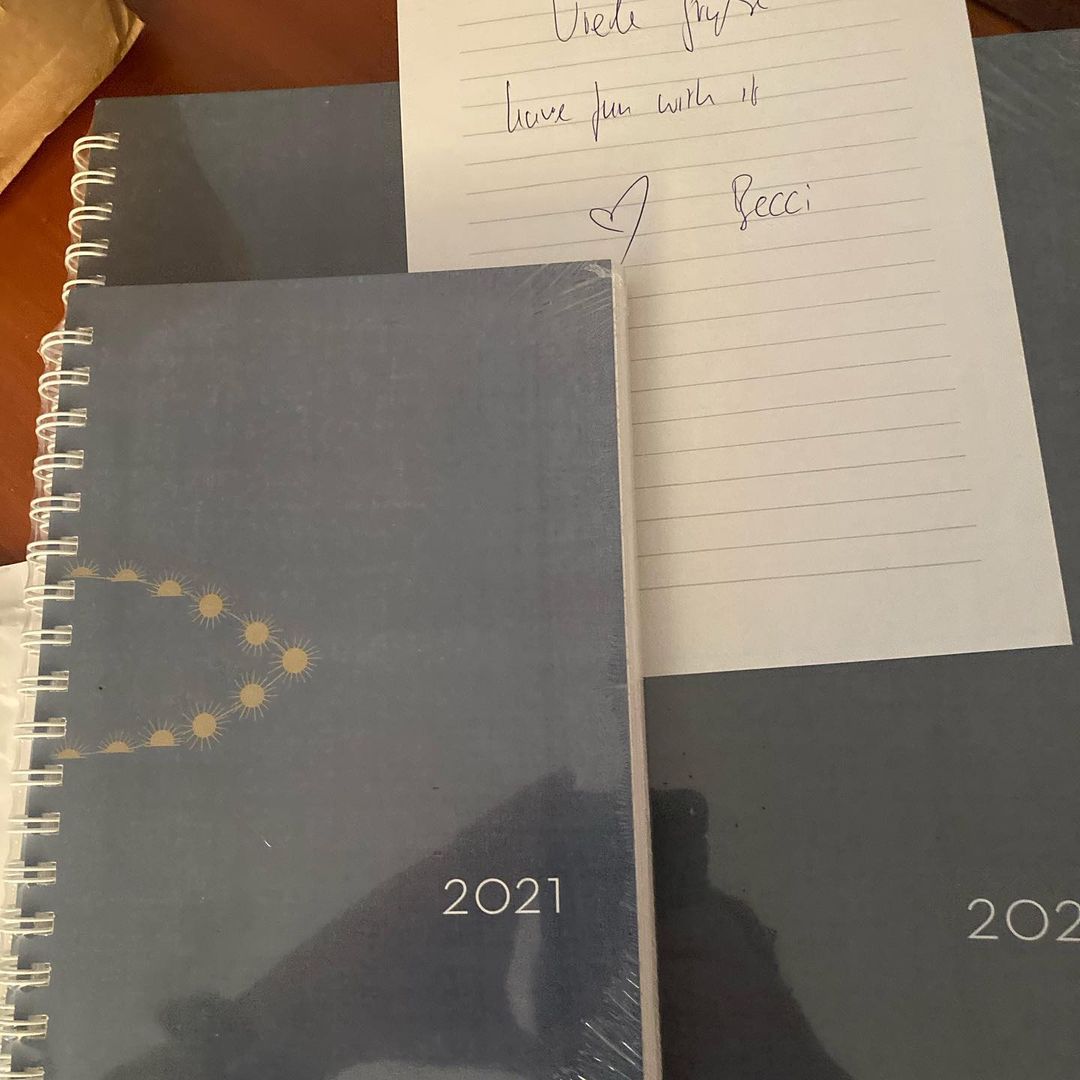 Viele Grüße
have fun with it
Becci
2021
202